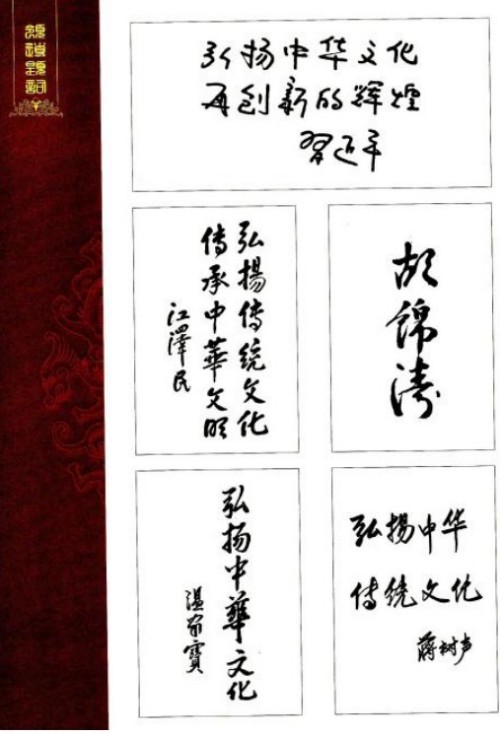 领导题词
弘扬中华文化
再创新的辉煌
習近平
弘揚传统文化
传承中華文明
江澤民
胡錦濤
弘扬中華文化
温家寶
弘揚中华
传统文化
蒋树声